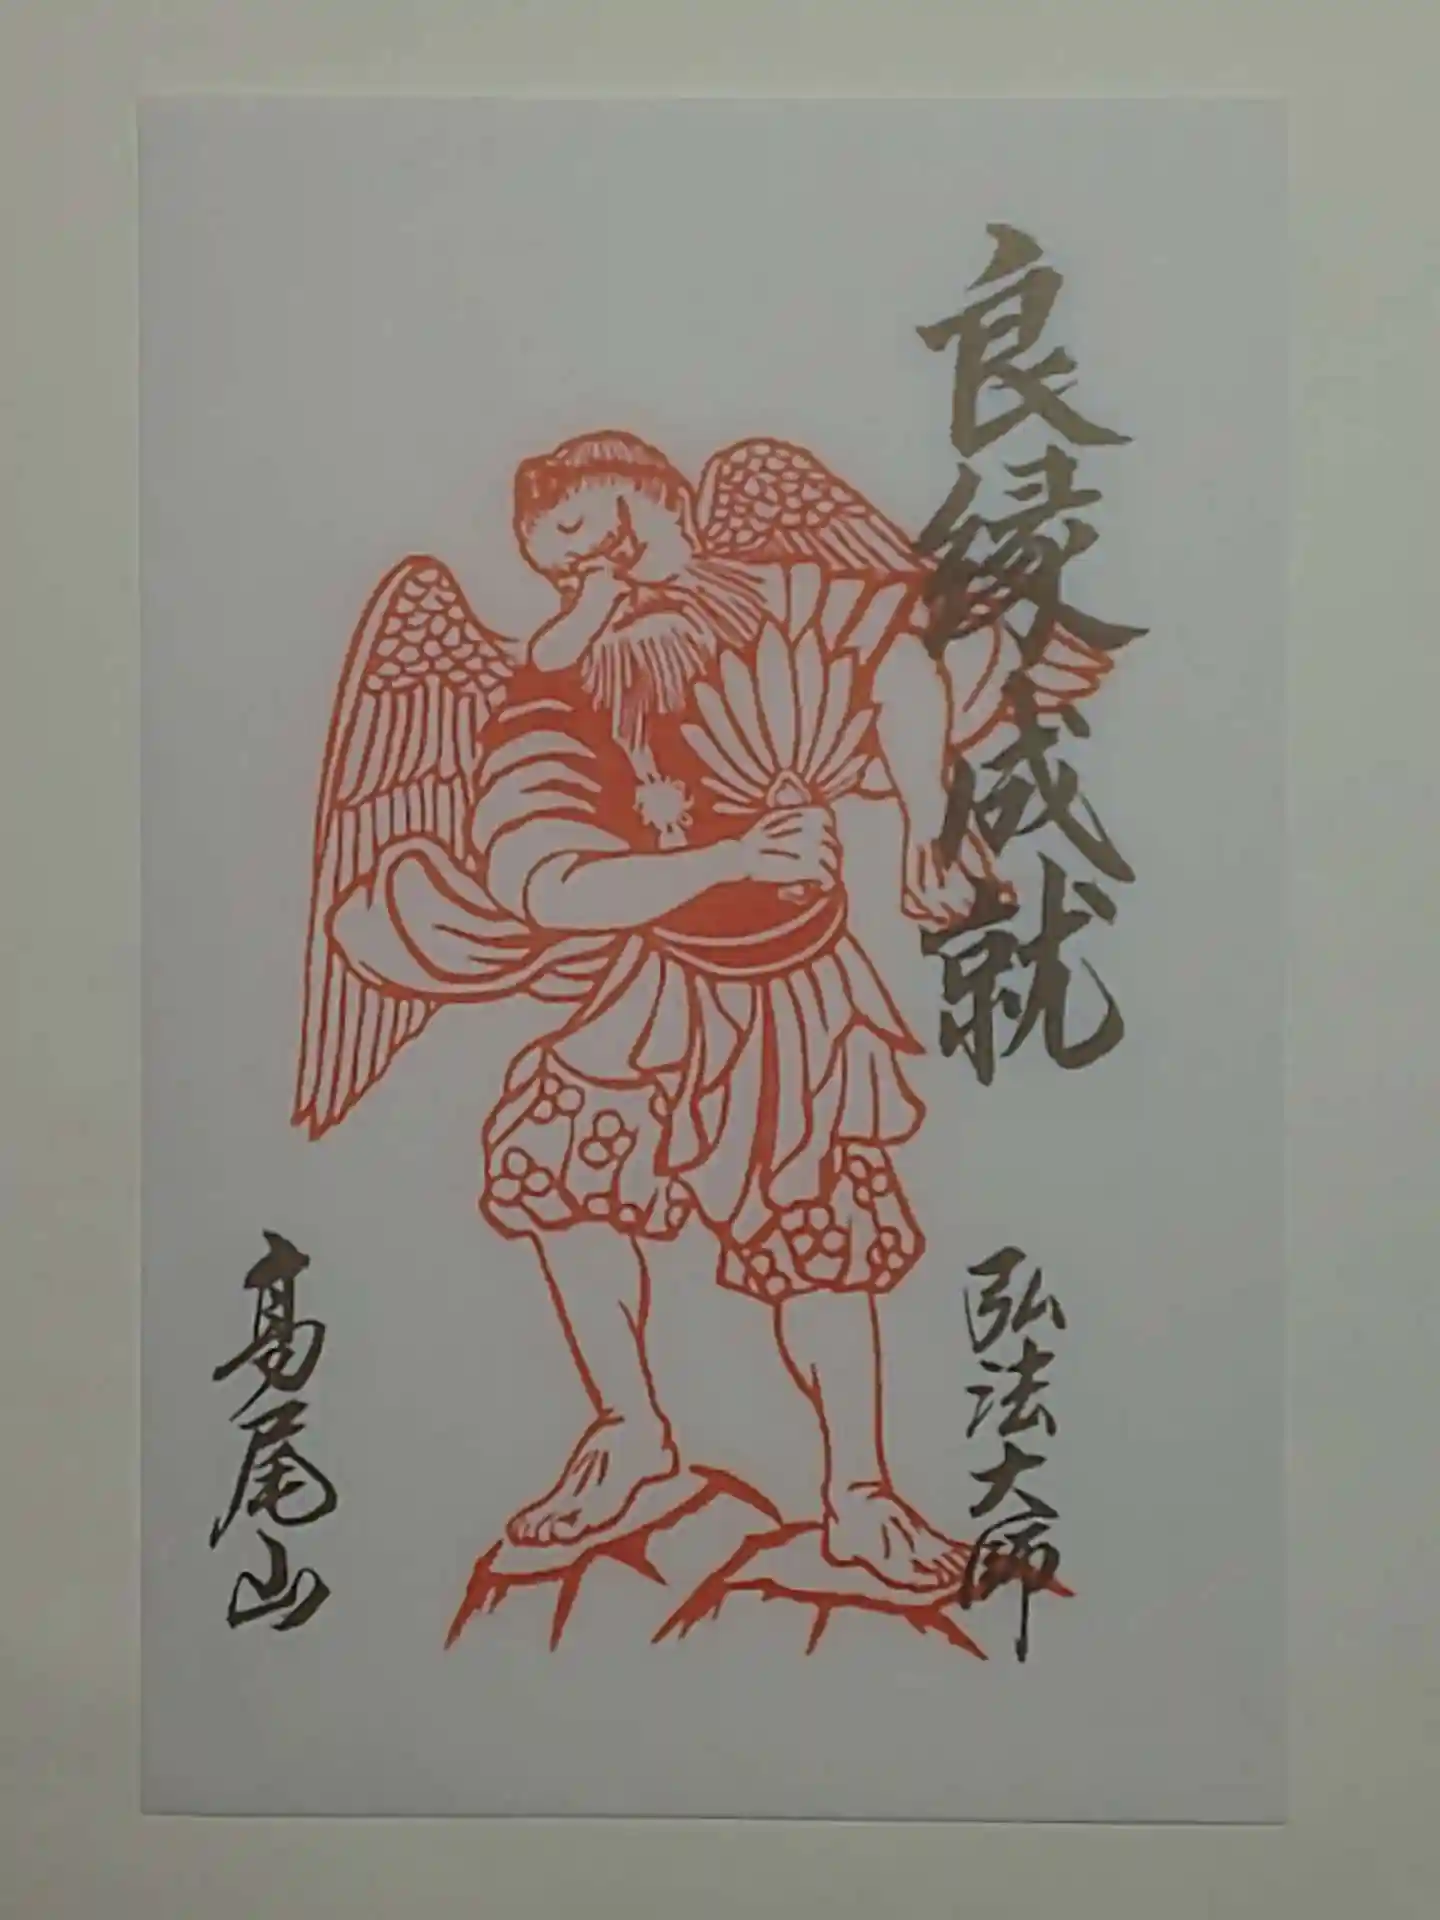 良縁成就
弘法大師
高尾山